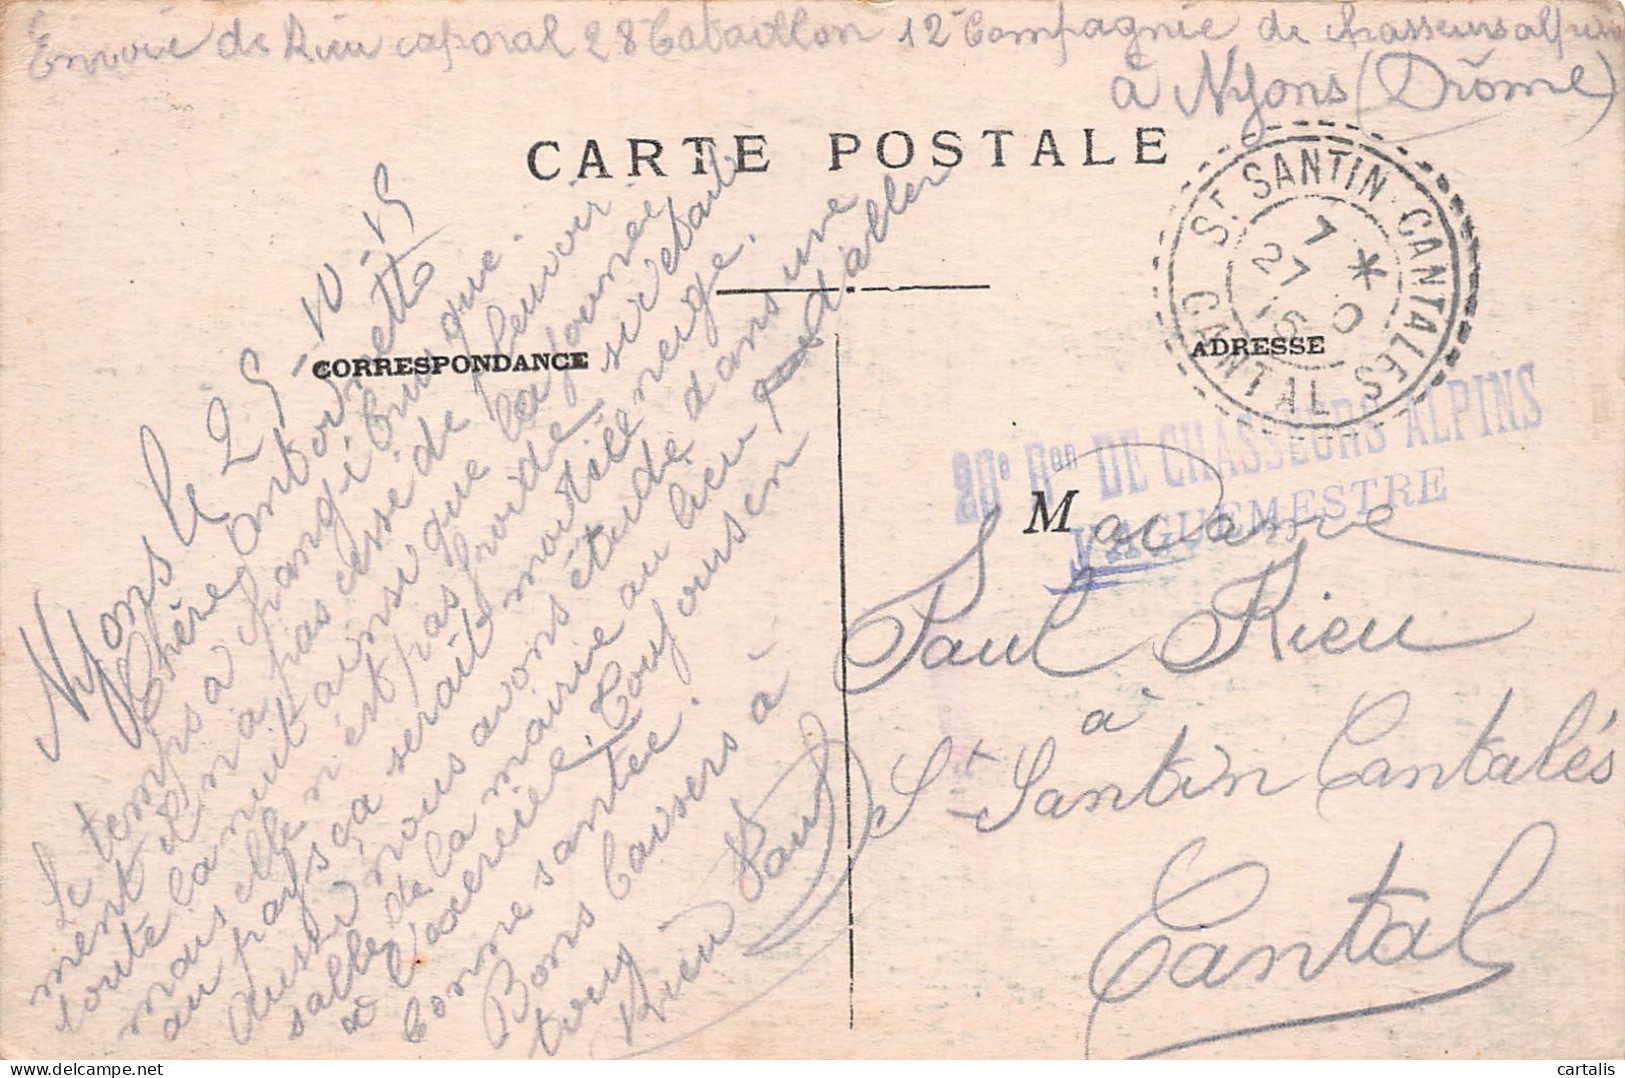 Envoie de Rieu caporal 28 bataillon 12e Compagnie de chasseurs alpins
à Nyons (Drôme)
CARTE POSTALE
CORRESPONDANCE
ADRESSE
Nyons le 25-10-15
Chère Antoinette
Le temps a changé brusque.
ment il n'a pas cessé de pleuvoir
toute la nuit ainsi que la journée
mais elle n'est pas froide si c'etait
au pays ça serait moitié neige.
Aussi nous avons étude dans une
salle de la mairie au lieu d'aller
a l'exercice. Toujours en
bonne santée.
Bons baisers à
tous
Rieu Paul
ST SANTIN-CANTALES
CANTAL
7 *
27 10
15
28e Bon DE CHASSEURS ALPINS
VAGUEMESTRE
Madame
Paul Rieu
à
St Santin Cantalés
Cantal
cartalis
delcampe.net